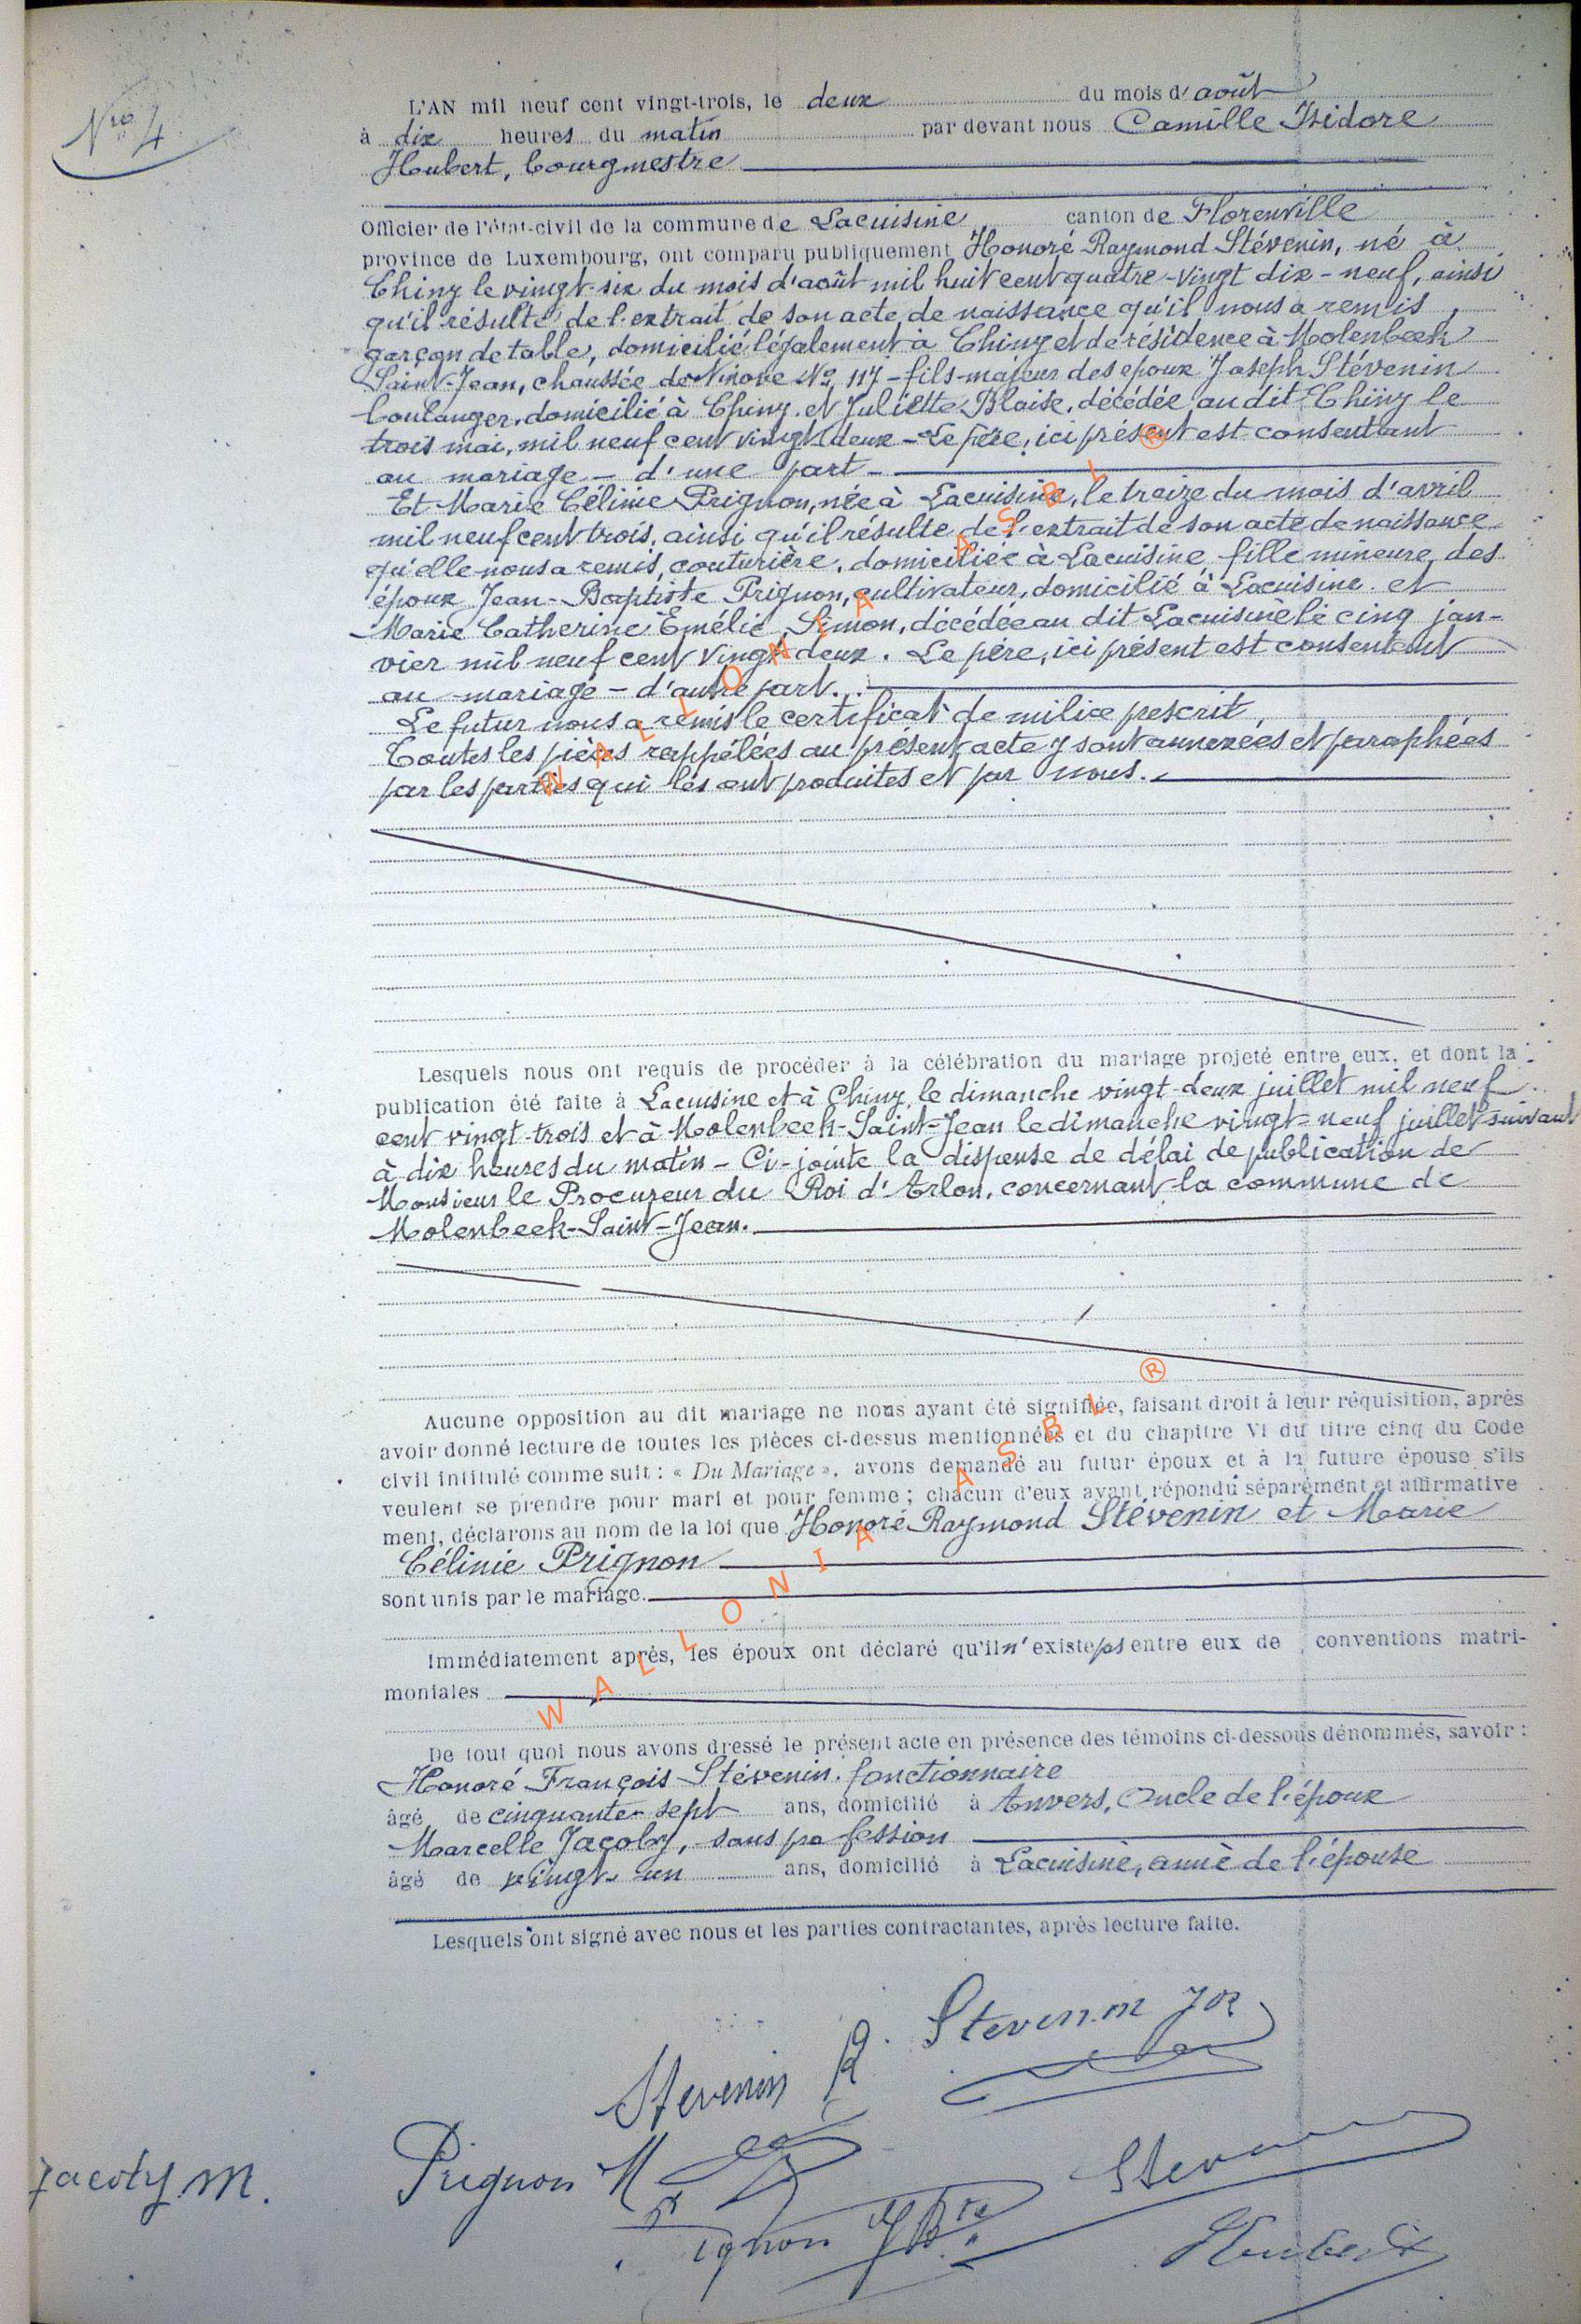 Nro 4
L'AN mil neuf cent vingt-trois, le deux du mois d'août
à dix heures du matin par devant nous Camille Isidore
Hubert, bourgmestre
Officier de l'état-civil de la commune de Lacuisine canton de Florenville
province de Luxembourg, ont comparu publiquement Honoré Raymond Stévenin, né à
Chiny le vingt-six du mois d'août mil huit cent quatre-vingt dix-neuf, ainsi
qu'il résulte de l'extrait de son acte de naissance qu'il nous a remis,
garçon de table, domicilié légalement à Chiny et de résidence à Molenbeek
Saint-Jean, chaussée de Ninove No 117 - fils majeur des epoux Joseph Stévenin
boulanger, domicilié à Chiny et Juliette Blaise, décédée au dit Chiny le
trois mai, mil neuf cent vingt deux - Le père, ici présent est consentant
au mariage - d'une part -
Et Marie Célinie Prignon, née à Lacuisine, le treize du mois d'avril
mil neuf cent trois, ainsi qu'il résulte de l'extrait de son acte de naissance
qu'elle nous a remis, couturière, domiciliée à Lacuisine fille mineure des
époux Jean-Baptiste Prignon, cultivateur, domicilié à Lacuisine et
Marie Catherine Emélie Simon, décédée au dit Lacuisine le cinq jan-
vier mil neuf cent vingt deux. Le père, ici présent est consentant
au mariage - d'autre part.
Le futur nous a remis le certificat de milice prescrit,
Toutes les pièces rappélées au présent acte y sont annexées et paraphées
par les parties qui les ont produites et par nous.
Lesquels nous ont requis de procéder à la célébration du mariage projeté entre eux, et dont la
publication été faite à Lacuisine et à Chiny, le dimanche vingt-deux juillet mil neuf
cent vingt-trois et à Molenbeek-Saint-Jean le dimanche vingt-neuf juillet suivant
à dix heures du matin - Ci-jointe la dispense de délai de publication de
Monsieur le Procureur du Roi d'Arlon, concernant la commune de
Molenbeek-Saint-Jean.
Aucune opposition au dit mariage ne nous ayant été signifiée, faisant droit à leur réquisition, après
avoir donné lecture de toutes les pièces ci-dessus mentionnées et du chapitre VI du titre cinq du Code
civil intitulé comme suit : « Du Mariage », avons demandé au futur époux et à la future épouse s'ils
veulent se prendre pour mari et pour femme ; chacun d'eux ayant répondu séparément et affirmative
ment, déclarons au nom de la loi que Honoré Raymond Stévenin et Marie
Célinie Prignon
sont unis par le mariage.
Immédiatement après, les époux ont déclaré qu'il n'existe pas entre eux de conventions matri-
moniales
De tout quoi nous avons dressé le présent acte en présence des témoins ci-dessous dénommés, savoir :
Honoré François Stévenin, fonctionnaire
âgé de cinquante-sept ans, domicilié à Anvers, Oncle de l'époux
Marcelle Jacoby, sans profession
âgé de vingt-un ans, domicilié à Lacuisine, amie de l'épouse
Lesquels ont signé avec nous et les parties contractantes, après lecture faite.
Stevenin Jos
Stevenin R.
Prignon M
Jacoby M.
Prignon JBte
Hubert
WALLONIA ASBL ®
WALLONIA ASBL ®